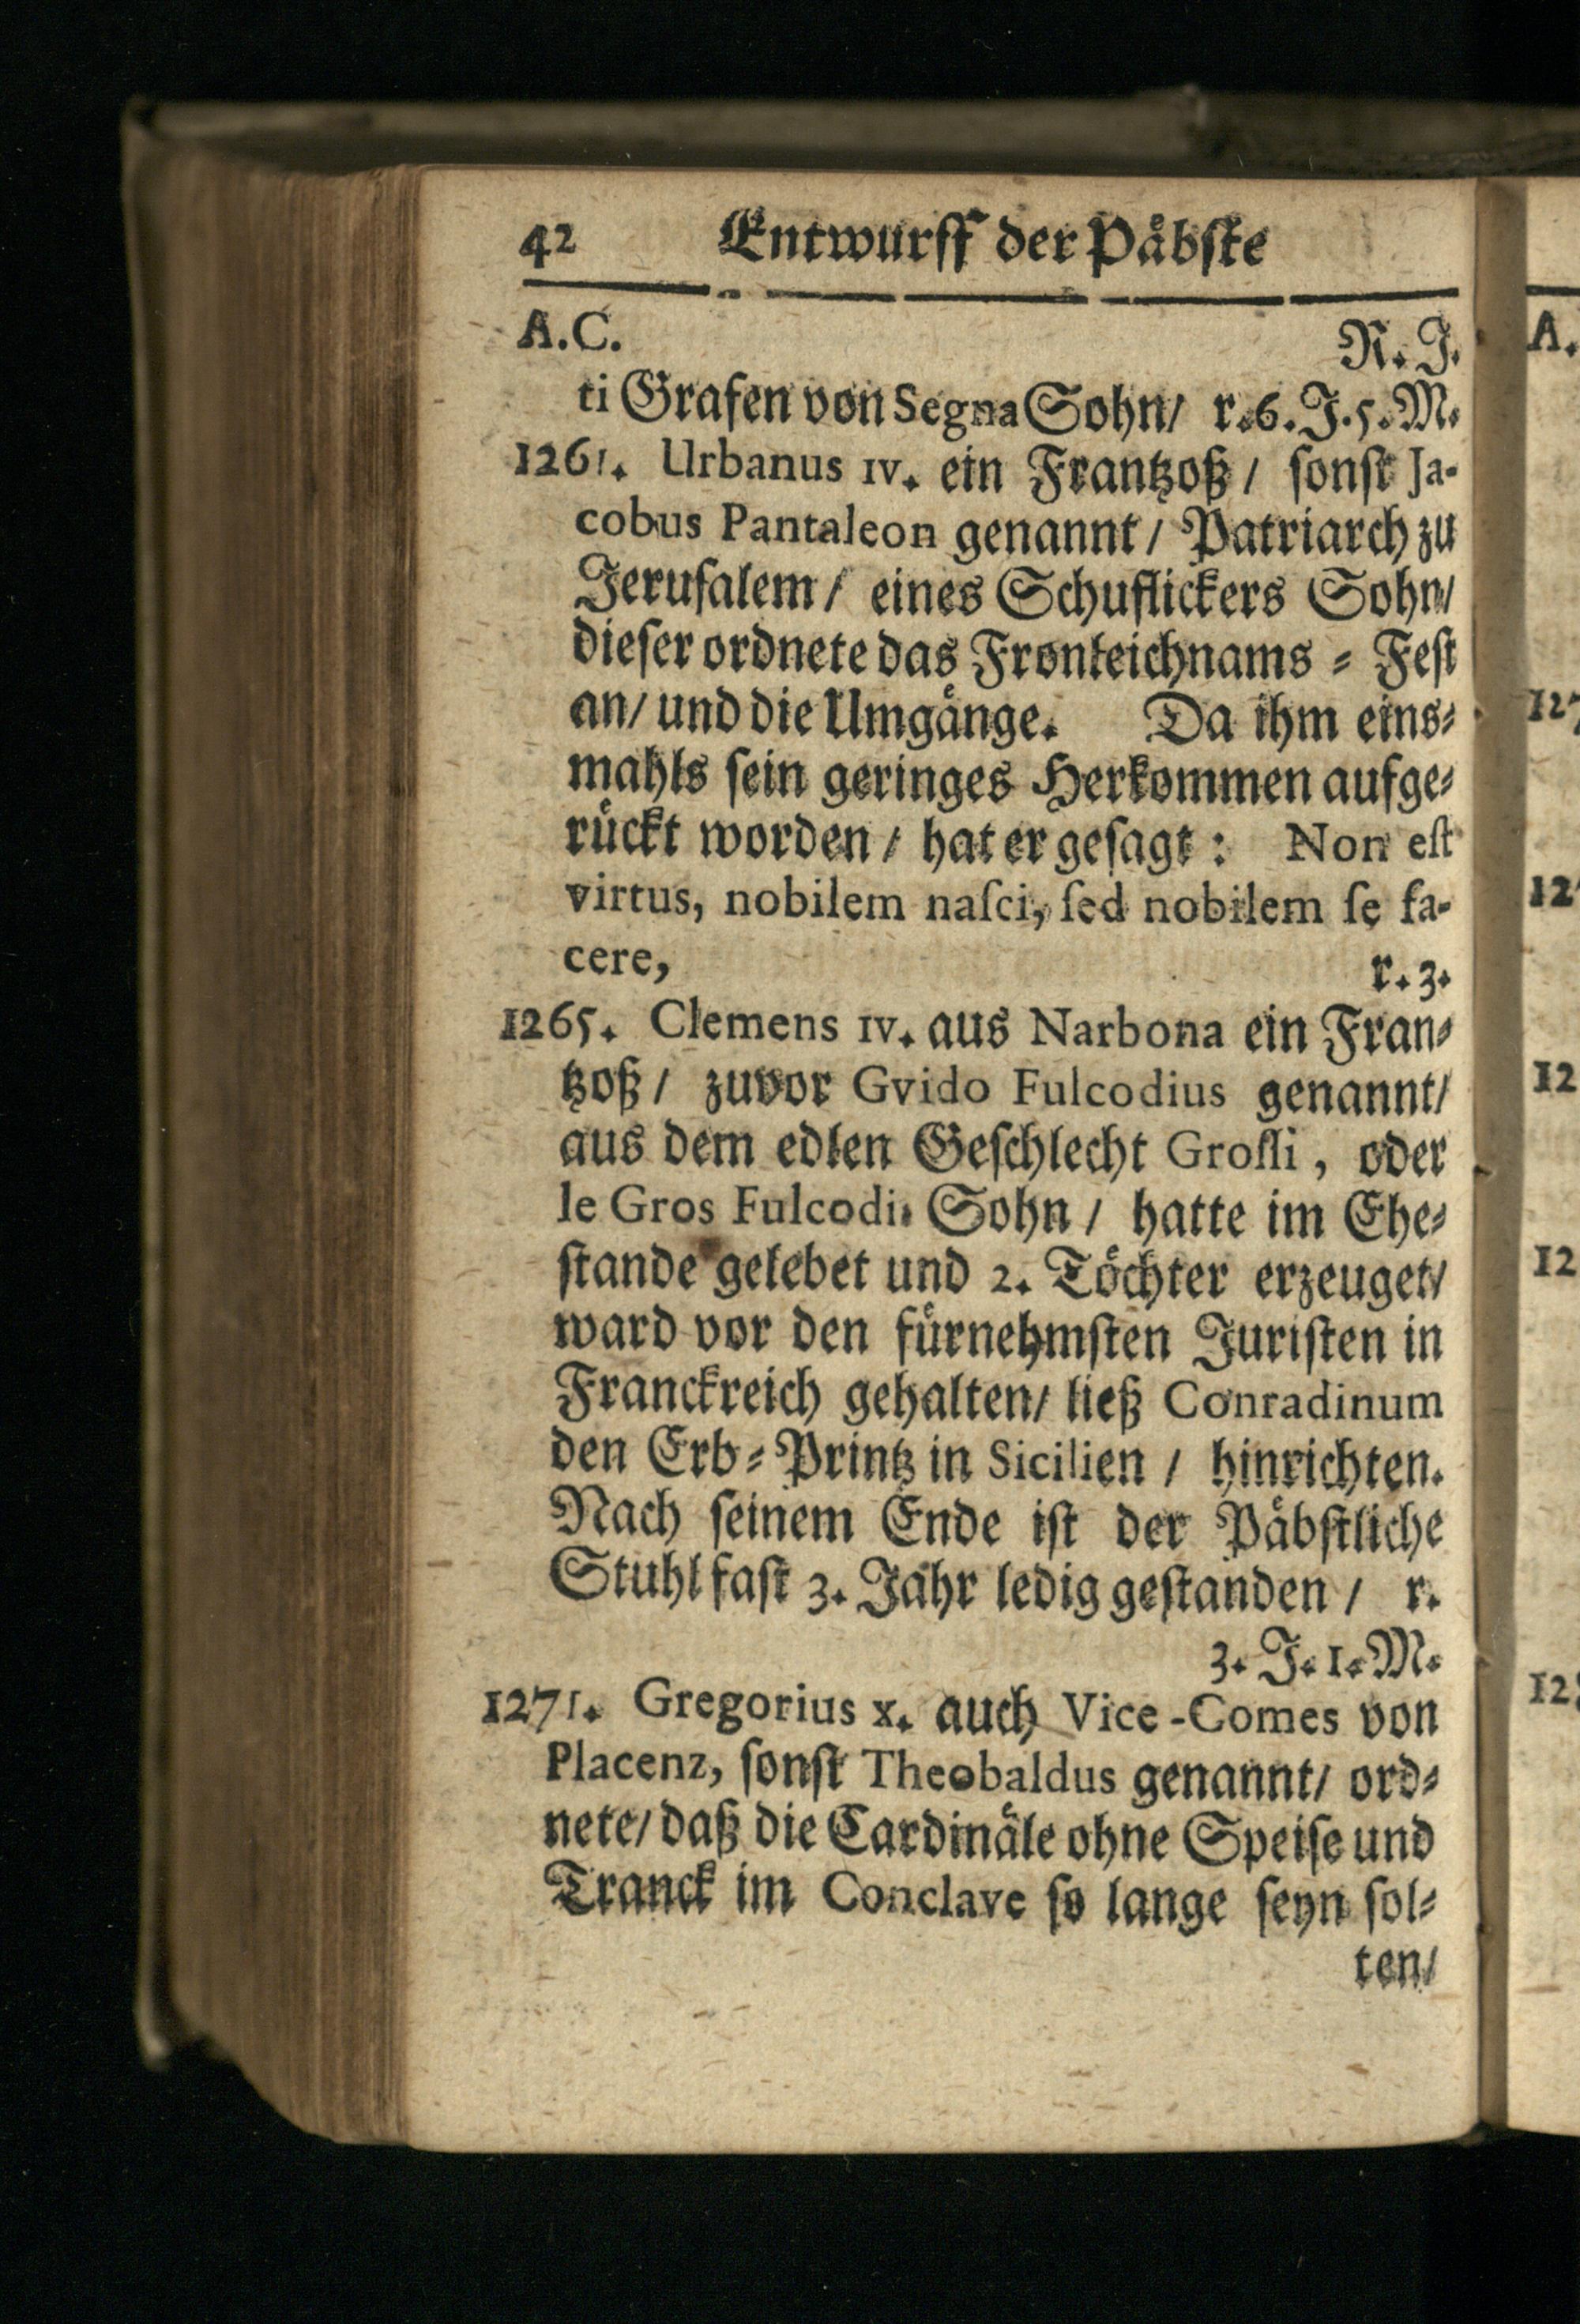 42 Entwurff der Päbſte
A.C. R. J.
ti Grafen von Segna Sohn/ r. 6. J. 5. M.
1261. Urbanus IV. ein Frantzoß / ſonſt Ja-
cobus Pantaleon genannt / Patriarch zu
Jeruſalem / eines Schuflickers Sohn/
dieſer ordnete das Fronleichnams = Feſt
an/ und die Umgänge. Da ihm eins=
mahls ſein geringes Herkommen aufge=
rückt worden / hat er geſagt : Non eſt
virtus, nobilem naſci, ſed nobilem ſe fa-
cere, r. 3.
1265. Clemens IV. aus Narbona ein Fran=
tzoß / zuvor Gvido Fulcodius genannt/
aus dem edlen Geſchlecht Groſſi, oder
le Gros Fulcodi. Sohn / hatte im Ehe=
ſtande gelebet und 2. Töchter erzeuget/
ward vor den fürnehmſten Juriſten in
Franckreich gehalten/ ließ Conradinum
den Erb=Printz in Sicilien / hinrichten.
Nach ſeinem Ende iſt der Päbſtliche
Stuhl faſt 3. Jahr ledig geſtanden / r.
3. J. 1. M.
1271. Gregorius X. auch Vice-Comes von
Placenz, ſonſt Theobaldus genannt/ ord=
nete/ daß die Cardinäle ohne Speiſe und
Tranck im Conclave ſo lange ſeyn ſol=
ten/